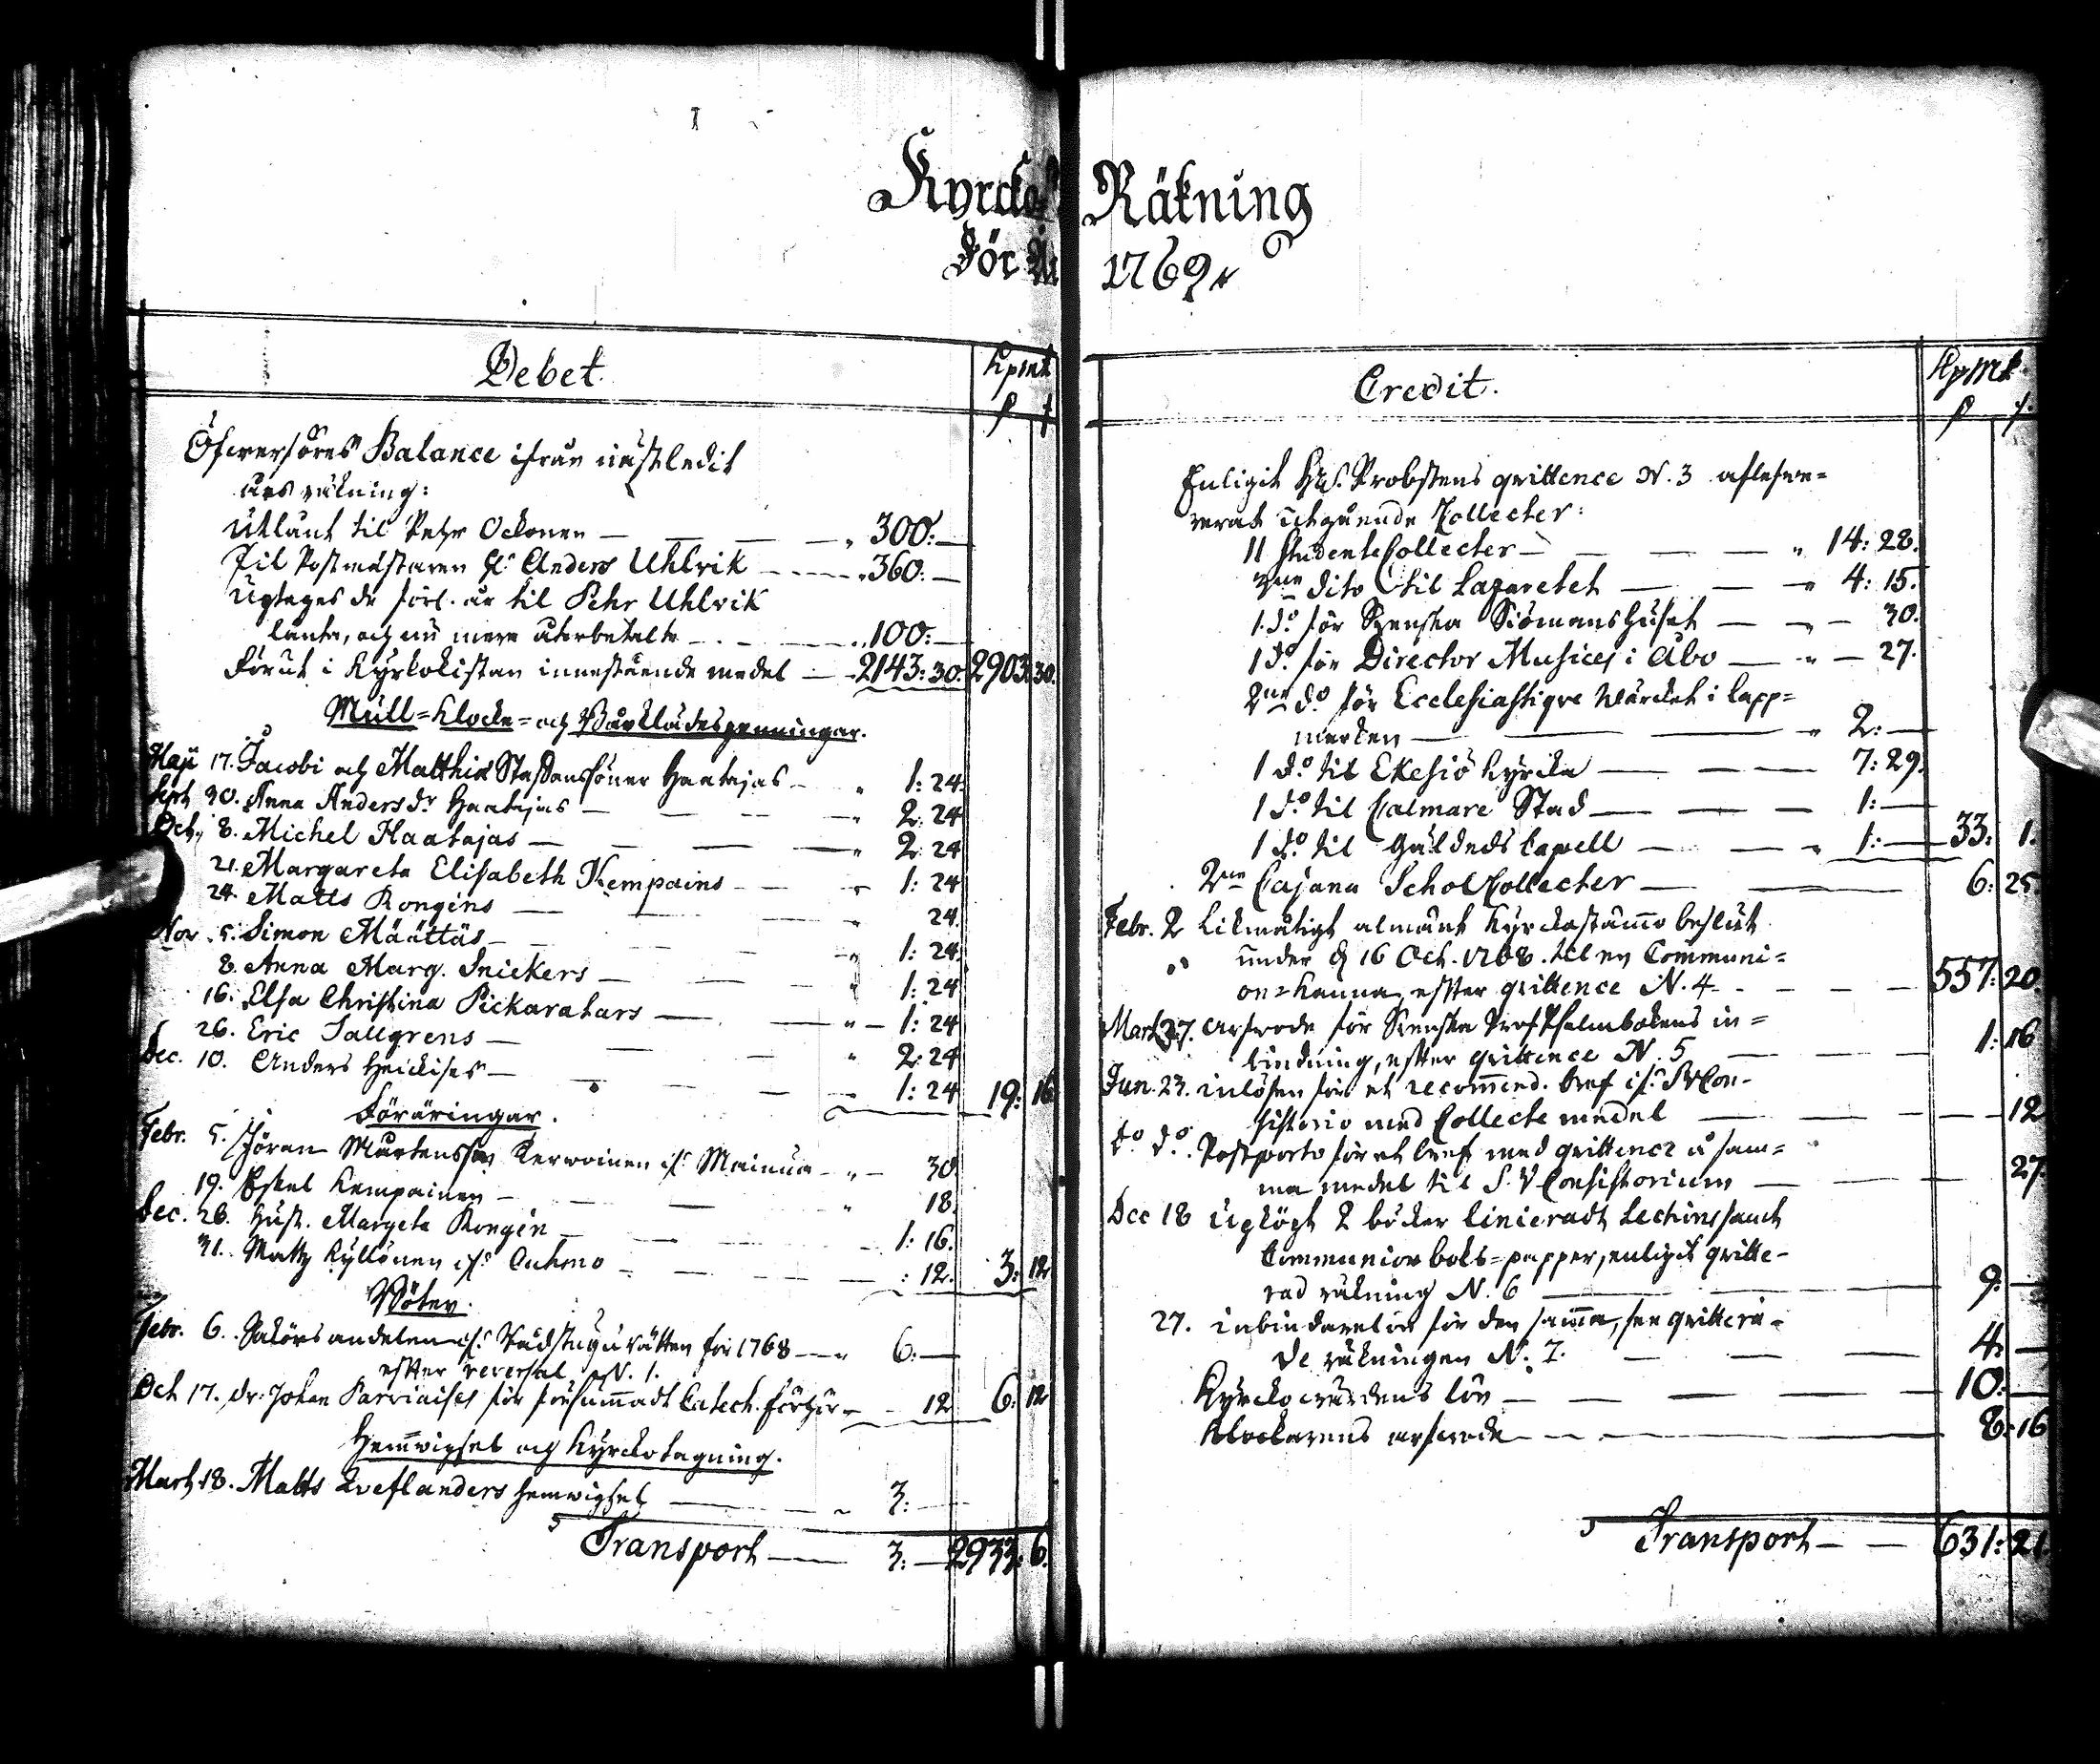 Kyrcko Räkning
För År 1769.
Debet. Kpmt
Öfwerföres Balance ifrån nästledit
års räkning:
Utlånt til Pehr Ockonen — 300:—
Til Postmästaren Hr Anders Uhlvik — 360:—
Uptages de förl. år til Pehr Uhlvik
lånte, och nu mera återbetalte — 100:—
Förut i Kyrkokistan innestående medel — 2143:30. 2903:30.
Mull-Klocke- och Bårklädespenningar.
Maji 17. Jacobi och Matthiæ Staffanssöner Haatajas — 1:24.
Sept 30. Anna Andersdr Haatajas — 2:24
Oct. 8. Michel Haatajas — 2:24
21. Margareta Elisabeth Kempains — 1:24
24. Matts Rongins — 24.
Nov. 5. Simon Määttäs — 1:24.
8. Anna Marg. Snickers — 1:24
16. Elsa Christina Pickaratars — 1:24
26. Eric Tallgrens — 2:24
Dec. 10. Anders Heickises — 1:24 19:16
Föräringar.
Febr. 5. Jöran Mårtensson Kerwoinen ifr. Mainua — 30.
19. Eskel Kempainen — 18.
Dec. 26. Hust. Margeta Rongin — 1:16.
31. Matts Kyllönen ifr. Cuhmo — :12. 3:12
Böter.
Febr. 6. Saköresandelen ifr. Rådstugu rätten för 1768 — 6:—
efter reversal N. 1.
Oct 17. Dr: Johan Parviaises för försummadt Catech. förhör — 12 6:12
Hemwigsel och Kyrckotagning.
Mart. 18. Matts Qveflanders hemwigsel — 3:—
Transport — 3:— 2933:6.
Credit. KpMt
Enligit HW. Probstens qvittence N. 3 aflefwe-
rerat utgående Collecter:
11 Studente Collecter — 14:28.
2ne dito til Lazaretet — 4:15.
1 do för Svenska Siömanshuset — 30.
1 do för Director Musices i Åbo — 27.
2ne do för Ecclesiastiqve Wärcket i Lapp-
marken — 2:—
1 do til Ekesiö Kyrcka — 7:29.
1 do til Calmare Stad — 1:—
1 do til Gäldeds Capell — 1:— 33:1.
2ne Cajana Schol Collecter — 6:25.
Febr. 2 Likmätigt almänt Kyrckostämmo beslut
under d 16 Oct. 1768. til en Communi-
on-Kanna, efter qvittence N. 4 — 557:20.
Mart. 27. Arfwode för Svenska Prof Psalmbokens in-
bindning, efter qvittence N. 5 — 1:16
Jun. 23. inlösen för et recommend. bref ifr. SVCon-
sistorio med Collecte medel — 12
do do. Postporto för et bref med qvittence å sam-
ma medel til S. V Consistorium — 27.
Dec 18 Upköpt 2 böcker linieradt Lections samt
Communion boks-papper, enligit qvitte-
rad räkning N. 6 — 9.—
27. inbindarelön för den samma, se qvittera-
de räkningen N. 7. — 4.—
Kyrckowärdens lön — 10.—
Klockarens arfwode — 8:16
Transport — 631:21.